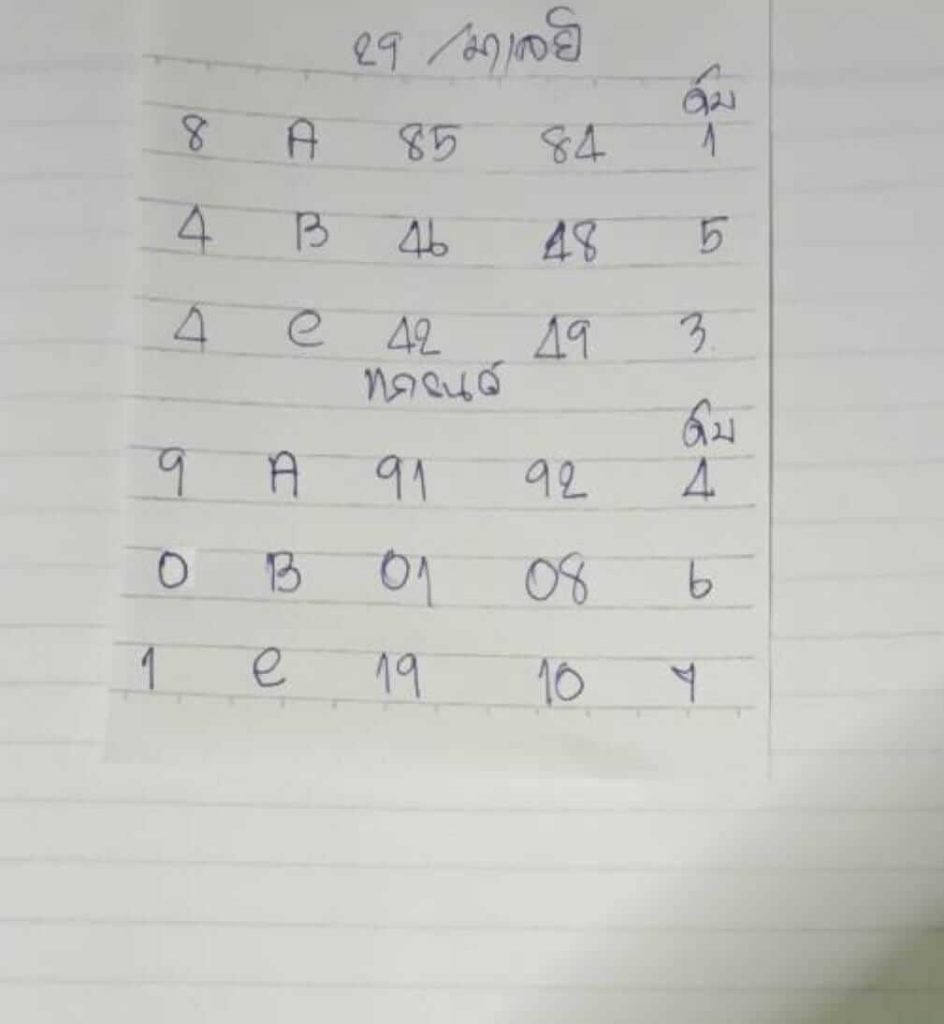 29 /มาเลย์
ดับ
8 A 85 84 1
4 B 46 48 5
4 C 42 49 3
ดับ
9 A 91 92 4
0 B 01 08 6
1 C 19 10 7